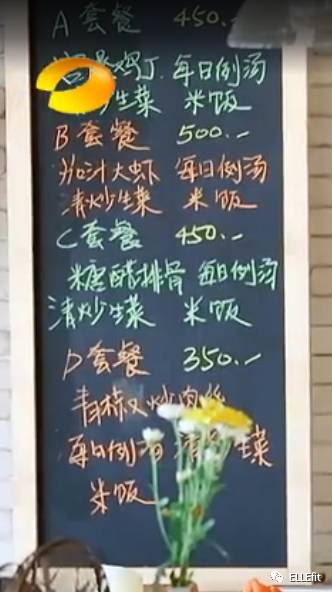 A套餐 450.—
鸡丁 每日例汤
炒生菜 米饭
B套餐 500.—
茄汁大虾 每日例汤
清炒生菜 米饭
C套餐 450.—
糖醋排骨 每日例汤
清炒生菜 米饭
D套餐 350.—
青椒炒肉丝
每日例汤 清炒生菜
米饭
ELLEfit